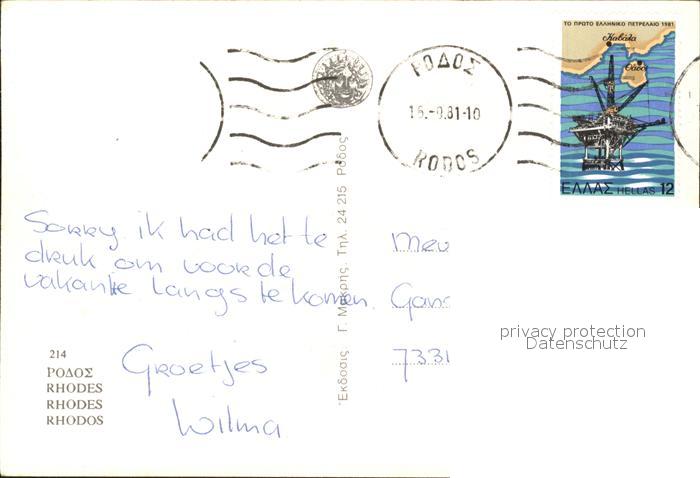 ΤΟ ΠΡΩΤΟ ΕΛΛΗΝΙΚΟ ΠΕΤΡΕΛΑΙΟ 1981
Καβάλα
Θάσος
ΕΛΛΑΣ HELLAS 12
ΡΟΔΟΣ
16.-9.81-10
RODOS
Sorry ik had het te
druk om voor de
vakantie langs te komen.
Groetjes
Wilma
Mev
Gans
7331
Ἔκδοσις Γ. Μακρῆς. Τηλ. 24 215 Ρόδος
214
ΡΟΔΟΣ
RHODES
RHODES
RHODOS
privacy protection
Datenschutz